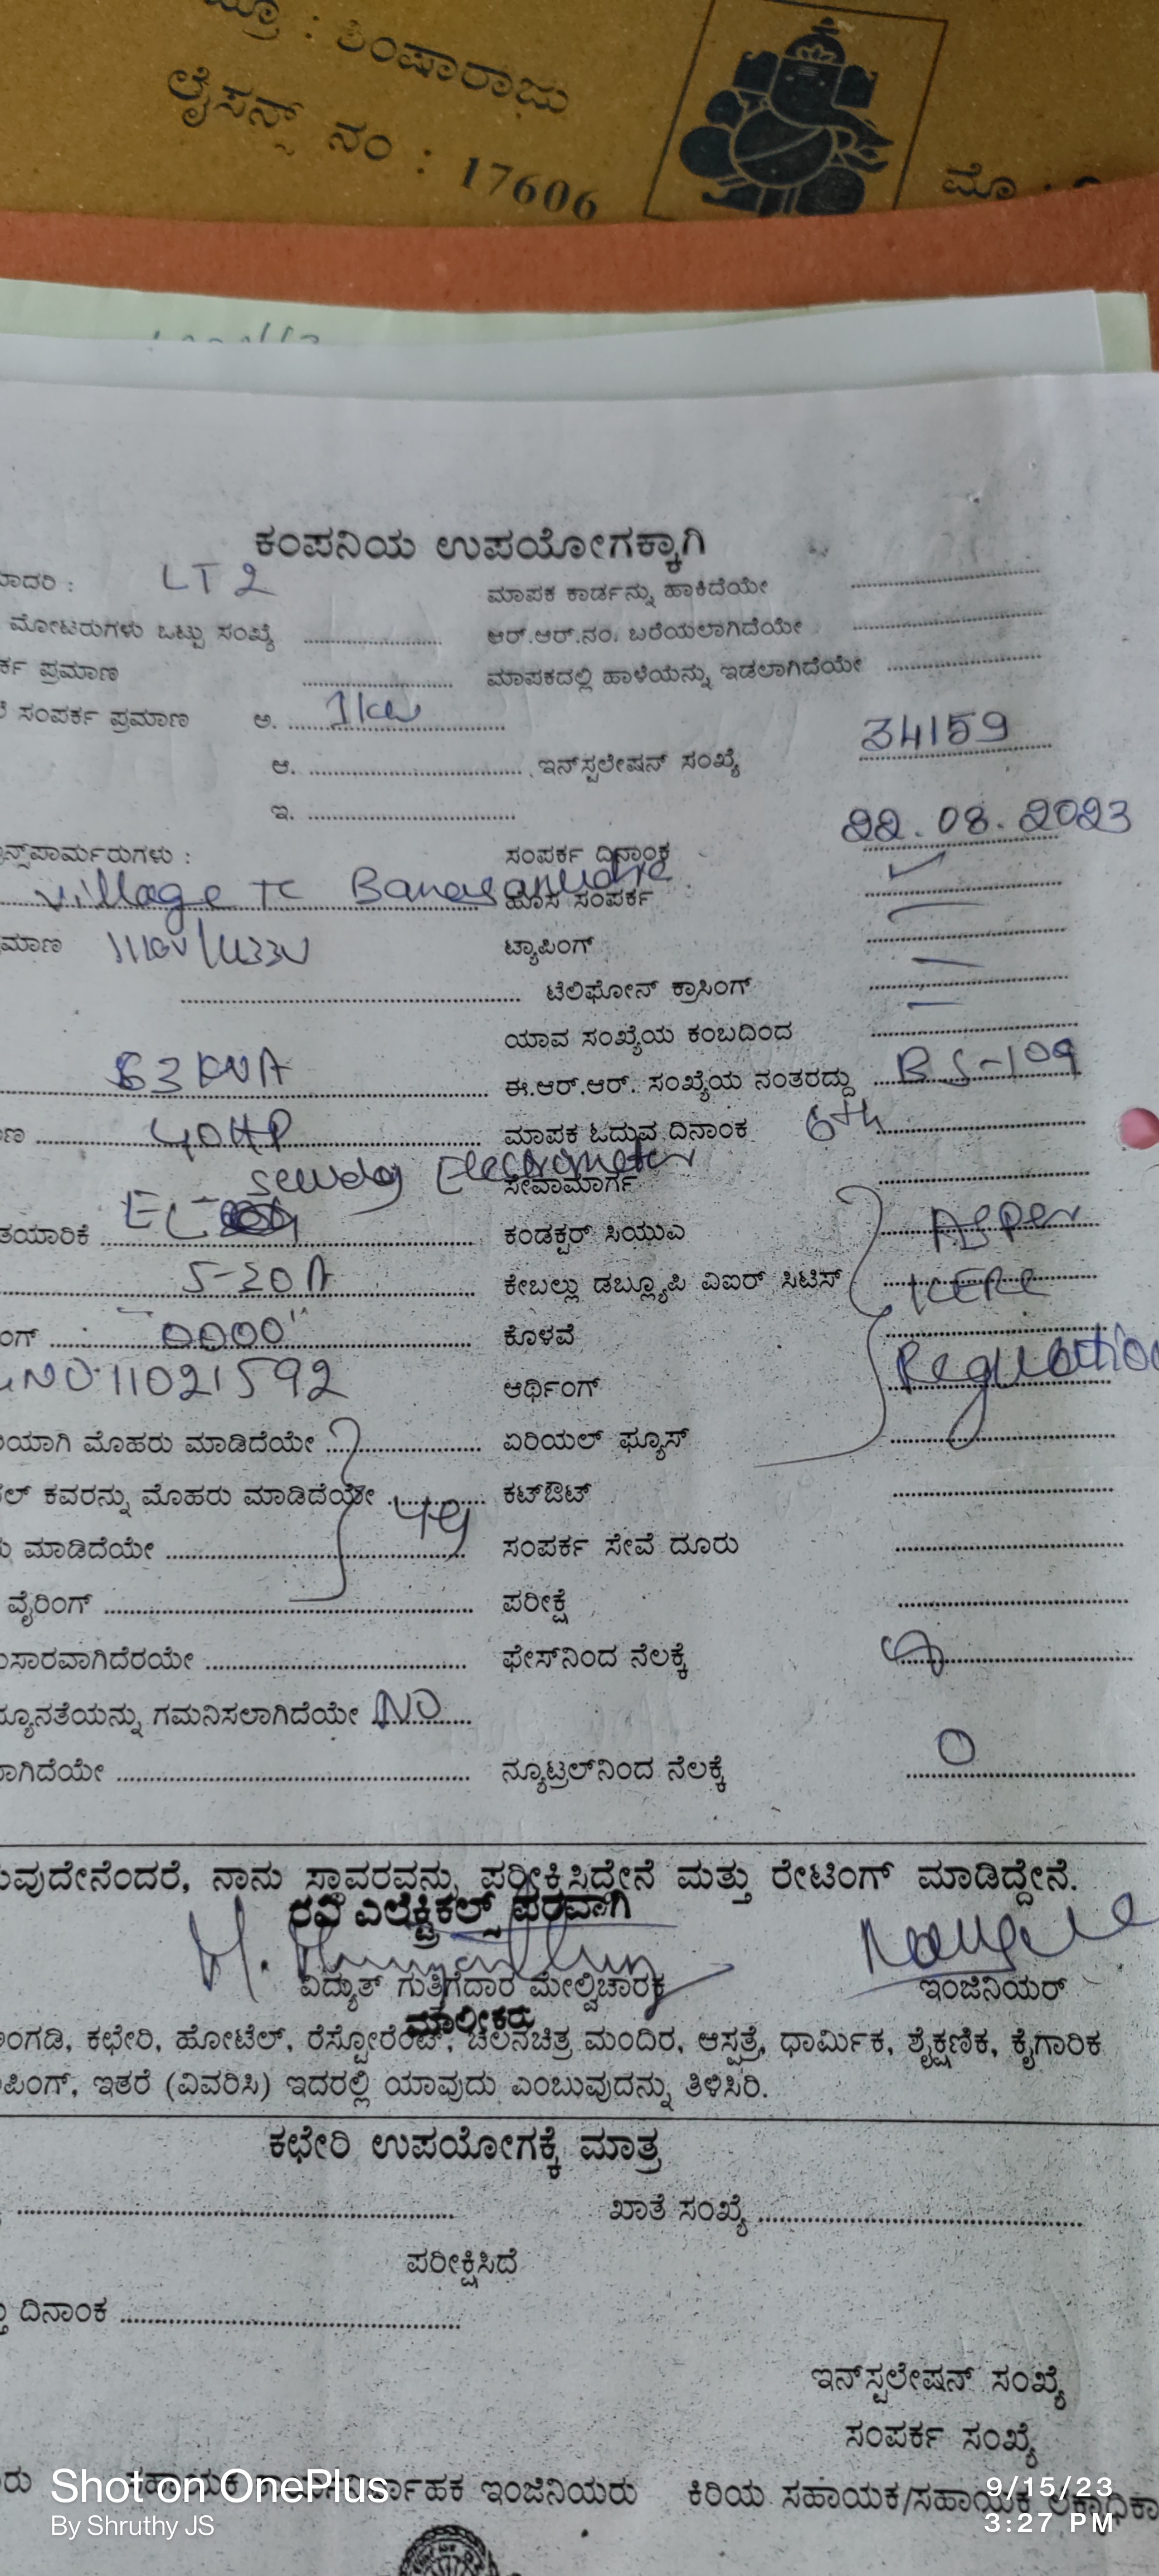 ಶಿಂಷಾರಾಜು
ಲೈಸನ್ಸ್ ನಂ : 17606
ಮೊ :
ಕಂಪನಿಯ ಉಪಯೋಗಕ್ಕಾಗಿ
LT 2 ಮಾಪಕ ಕಾರ್ಡನ್ನು ಹಾಕಿದೆಯೇ
ಮೋಟರುಗಳು ಒಟ್ಟು ಸಂಖ್ಯೆ ಆರ್.ಆರ್.ನಂ. ಬರೆಯಲಾಗಿದೆಯೇ
ಪ್ರಮಾಣ ಮಾಪಕದಲ್ಲಿ ಹಾಳೆಯನ್ನು ಇಡಲಾಗಿದೆಯೇ
ಸಂಪರ್ಕ ಪ್ರಮಾಣ ಅ. 1kw
ಆ. ಇನ್‌ಸ್ಪಲೇಷನ್ ಸಂಖ್ಯೆ 34159
ಇ.
ಸಂಪರ್ಕ ದಿನಾಂಕ 22.08.2023
Village TC ಹೊಸ ಸಂಪರ್ಕ
ಟ್ಯಾಪಿಂಗ್
ಟೆಲಿಫೋನ್ ಕ್ರಾಸಿಂಗ್
ಯಾವ ಸಂಖ್ಯೆಯ ಕಂಬದಿಂದ
63 KVA ಈ.ಆರ್.ಆರ್. ಸಂಖ್ಯೆಯ ನಂತರದ್ದು BS-109
40HP ಮಾಪಕ ಓದುವ ದಿನಾಂಕ 6th
ಸೇವಾಮಾರ್ಗ
ತಯಾರಿಕೆ ಕಂಡಕ್ಟರ್ ಸಿಯುಎ As per
5-30A ಕೇಬಲ್ಲು ಡಬ್ಲ್ಯೂಪಿ ವಿಐರ್ ಸಿಟಿಸ್ KERC
0000 ಕೊಳವೆ
NO. 11021592 ಆರ್ಥಿಂಗ್ Regulation
ಮೊಹರು ಮಾಡಿದೆಯೇ ಏರಿಯಲ್ ಫ್ಯೂಸ್
ಕವರನ್ನು ಮೊಹರು ಮಾಡಿದೆಯೇ ಕಟ್‌ಔಟ್
ಮಾಡಿದೆಯೇ ಸಂಪರ್ಕ ಸೇವೆ ದೂರು
ವೈರಿಂಗ್ ಪರೀಕ್ಷೆ
ಫೇಸ್‌ನಿಂದ ನೆಲಕ್ಕೆ
ಗಮನಿಸಲಾಗಿದೆಯೇ NO
ನ್ಯೂಟ್ರಲ್‌ನಿಂದ ನೆಲಕ್ಕೆ 0
ನಾನು ಸ್ಥಾವರವನ್ನು ಪರೀಕ್ಷಿಸಿದ್ದೇನೆ ಮತ್ತು ರೇಟಿಂಗ್ ಮಾಡಿದ್ದೇನೆ.
ರವಿ ಎಲೆಕ್ಟ್ರಿಕಲ್ಸ್ ಪರವಾಗಿ
ವಿದ್ಯುತ್ ಗುತ್ತಿಗೆದಾರ ಮೇಲ್ವಿಚಾರಕ ಇಂಜಿನಿಯರ್
ಮಾಲೀಕರು
ಕಛೇರಿ, ಹೋಟೆಲ್, ರೆಸ್ಟೋರೆಂಟ್, ಚಲನಚಿತ್ರ ಮಂದಿರ, ಆಸ್ಪತ್ರೆ, ಧಾರ್ಮಿಕ, ಶೈಕ್ಷಣಿಕ, ಕೈಗಾರಿಕ
ಇತರೆ (ವಿವರಿಸಿ) ಇದರಲ್ಲಿ ಯಾವುದು ಎಂಬುವುದನ್ನು ತಿಳಿಸಿರಿ.
ಕಛೇರಿ ಉಪಯೋಗಕ್ಕೆ ಮಾತ್ರ
ಖಾತೆ ಸಂಖ್ಯೆ
ಪರೀಕ್ಷಿಸಿದೆ
ದಿನಾಂಕ
ಇನ್‌ಸ್ಪಲೇಷನ್ ಸಂಖ್ಯೆ
ಸಂಪರ್ಕ ಸಂಖ್ಯೆ
ಇಂಜಿನಿಯರು ಕಿರಿಯ ಸಹಾಯಕ/ಸಹಾಯಕ
Shot on OnePlus
By Shruthy JS
9/15/23
3:27 PM